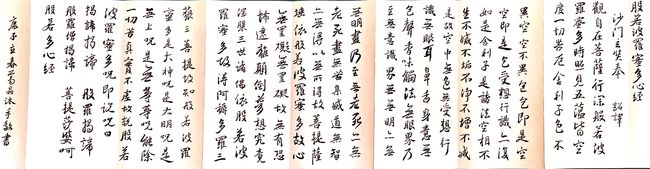 般若波羅蜜多心經
沙門玄奘奉 詔譯
觀自在菩薩行深般若波
羅蜜多時照見五蘊皆空
度一切苦厄舍利子色不
異空空不異色色即是空
空即是色受想行識亦復
如是舍利子是諸法空相不
生不滅不垢不淨不增不減
是故空中無色無受想行
識無眼耳鼻舌身意無
色聲香味觸法無眼界乃
至無意識界無無明亦無
無明盡乃至無老死亦無
老死盡無苦集滅道無智
亦無得以無所得故菩提薩
埵依般若波羅蜜多故心
無罣礙無罣礙故無有恐
怖遠離顛倒夢想究竟
涅槃三世諸佛依般若波
羅蜜多故得阿耨多羅三
藐三菩提故知般若波羅
蜜多是大神咒是大明咒是
無上咒是無等等咒能除
一切苦真實不虛故說般若
波羅蜜多咒即說咒曰
揭諦揭諦 般羅揭諦
般羅僧揭諦 菩提莎婆呵
般若多心經
庚子立春